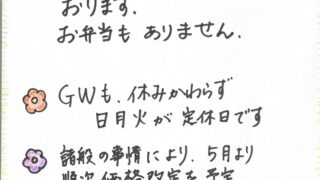 おります.
お弁当も ありません.
GWも、休みかわらず
日月火が 定休日です
諸般の事情により、5月より
順次 価格改定を予定